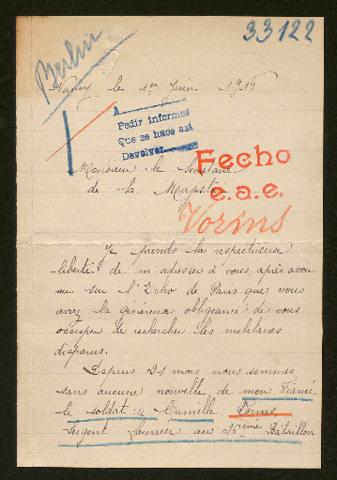 33122
Berlin
Nancy le 1er Juin 1916
A
Pedir informes
Que se hace asi
Devolver
Fecho
e.a.e.
Vorins
Monsieur le Secrétaire
de Sa Majesté
Je prends la respectueuse
liberté de m'adresser à vous, après avoir
vu sur l'Echo de Paris que vous
avez la généreux obligeance de vous
occuper de rechercher les militaires
disparus.
Depuis 21 mois nous sommes
sans aucune nouvelle, de mon Fiancé
le soldat: Camille Vorins
Sergent fourrier au 26ème Bataillon